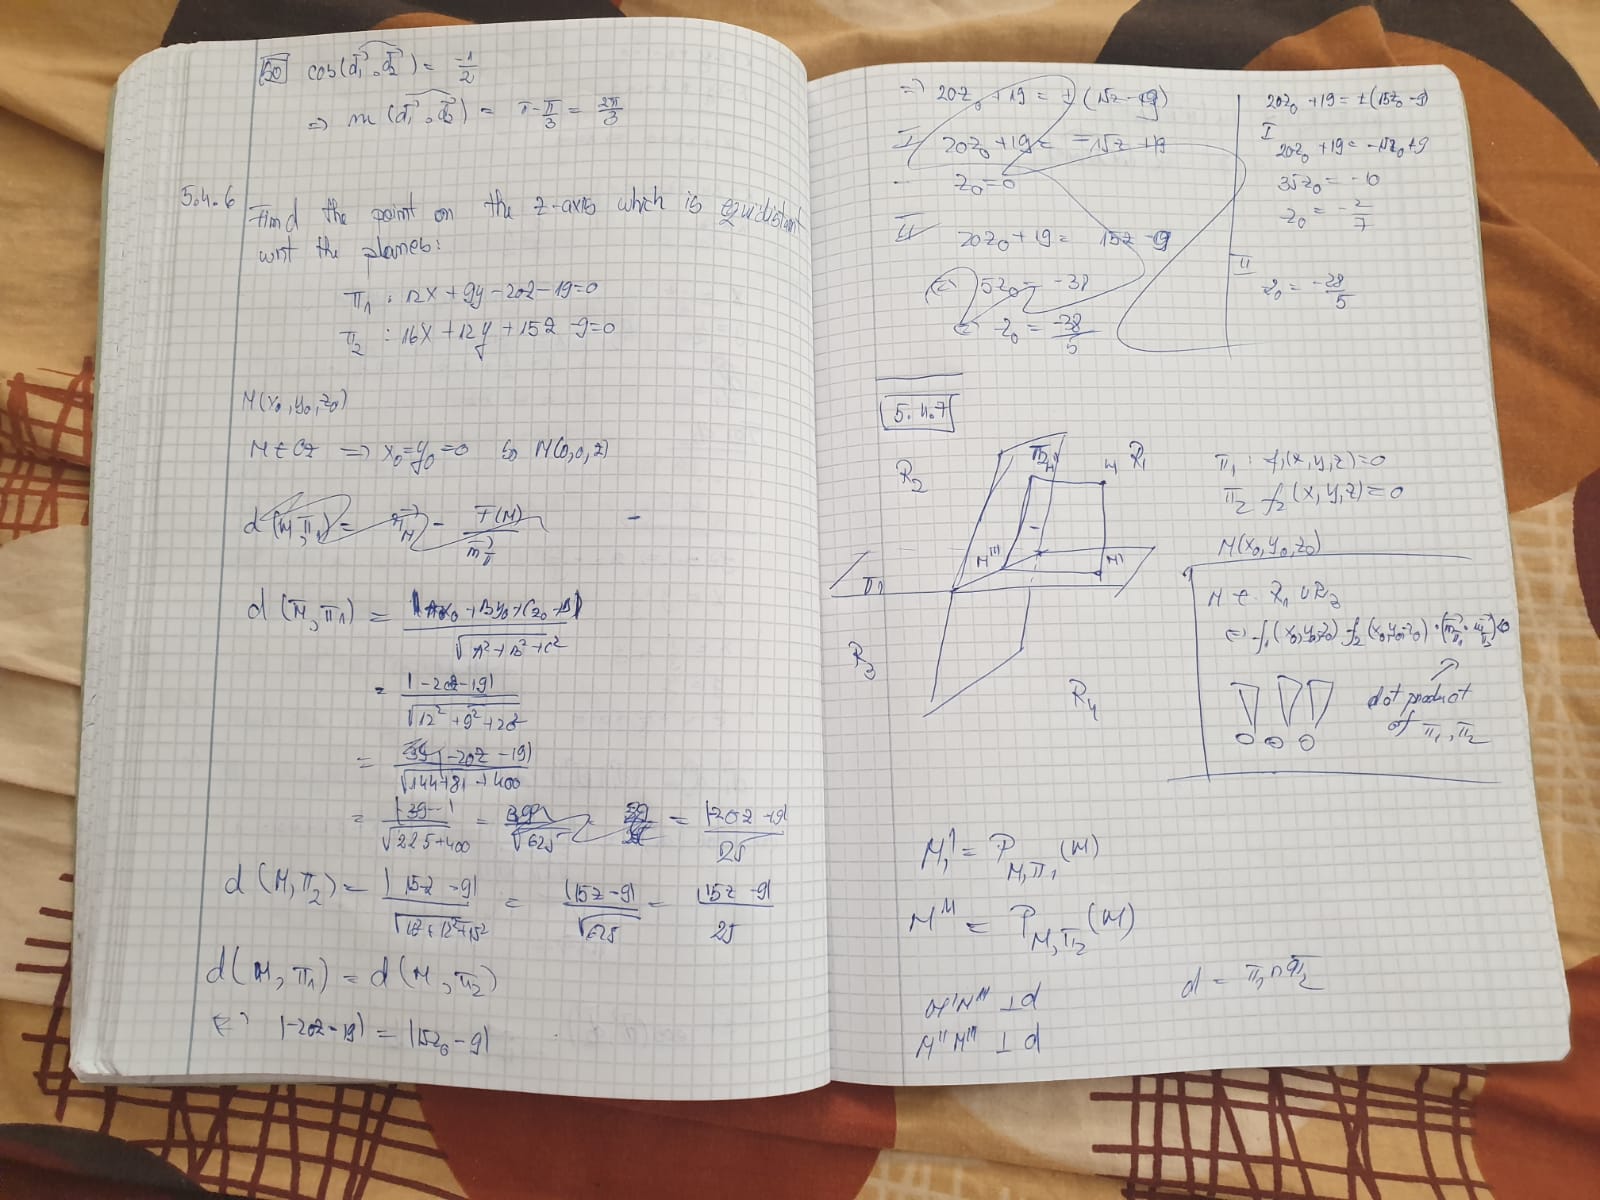 so cos(d₁, d₂) = -1/2
=> m(d₁, d₂) = π - π/3 = 2π/3
5.4.6 Find the point on the z-axis which is equidistant
wrt the planes:
π₁ : 12x + 9y - 20z - 19 = 0
π₂ : 16x + 12y + 15z - 9 = 0
M(x₀, y₀, z₀)
M ∈ Oz => x₀ = y₀ = 0 so M(0,0,z)
d(M, π₁) =
d(M, π₁) = |Ax₀ + By₀ + Cz₀ + D| / √(A² + B² + C²)
= |-20z - 19| / √(12² + 9² + 20²)
= |-20z - 19| / √(144 + 81 + 400)
= |-39-| / √(225 + 400) = 39 / √625 = |-20z - 19| / 25
d(M, π₂) = |15z - 9| / √(16² + 12² + 15²) = |15z - 9| / √625 = |15z - 9| / 25
d(M, π₁) = d(M, π₂)
<=> |-20z - 19| = |15z₀ - 9|
=> 20z₀ + 19 = ±(15z - 9)
I 20z₀ + 19 = -15z + 19
z₀ = 0
II 20z₀ + 19 = 15z - 9
5z₀ = -38
z₀ = -38/5
20z₀ + 19 = ±(15z₀ - 9)
I
20z₀ + 19 = -15z₀ + 9
35z₀ = -10
z₀ = -2/7
II
z₀ = -28/5
5.4.7
R₂ π₂ M'' M R₁
M''' M'
π₁
R₃
R₄
π₁ : f₁(x, y, z) = 0
π₂ f₂(x, y, z) = 0
M(x₀, y₀, z₀)
M ∈ R₁ ∪ R₃
<=> f₁(x₀, y₀, z₀) · f₂(x₀, y₀, z₀) · (n_π₁ · n_π₂) < 0
!!! dot product
of π₁, π₂
M' = P_M,π₁(M)
M'' = P_M,π₂(M)
d = π₁ ∩ π₂
M'M''' ⊥ d
M''M''' ⊥ d